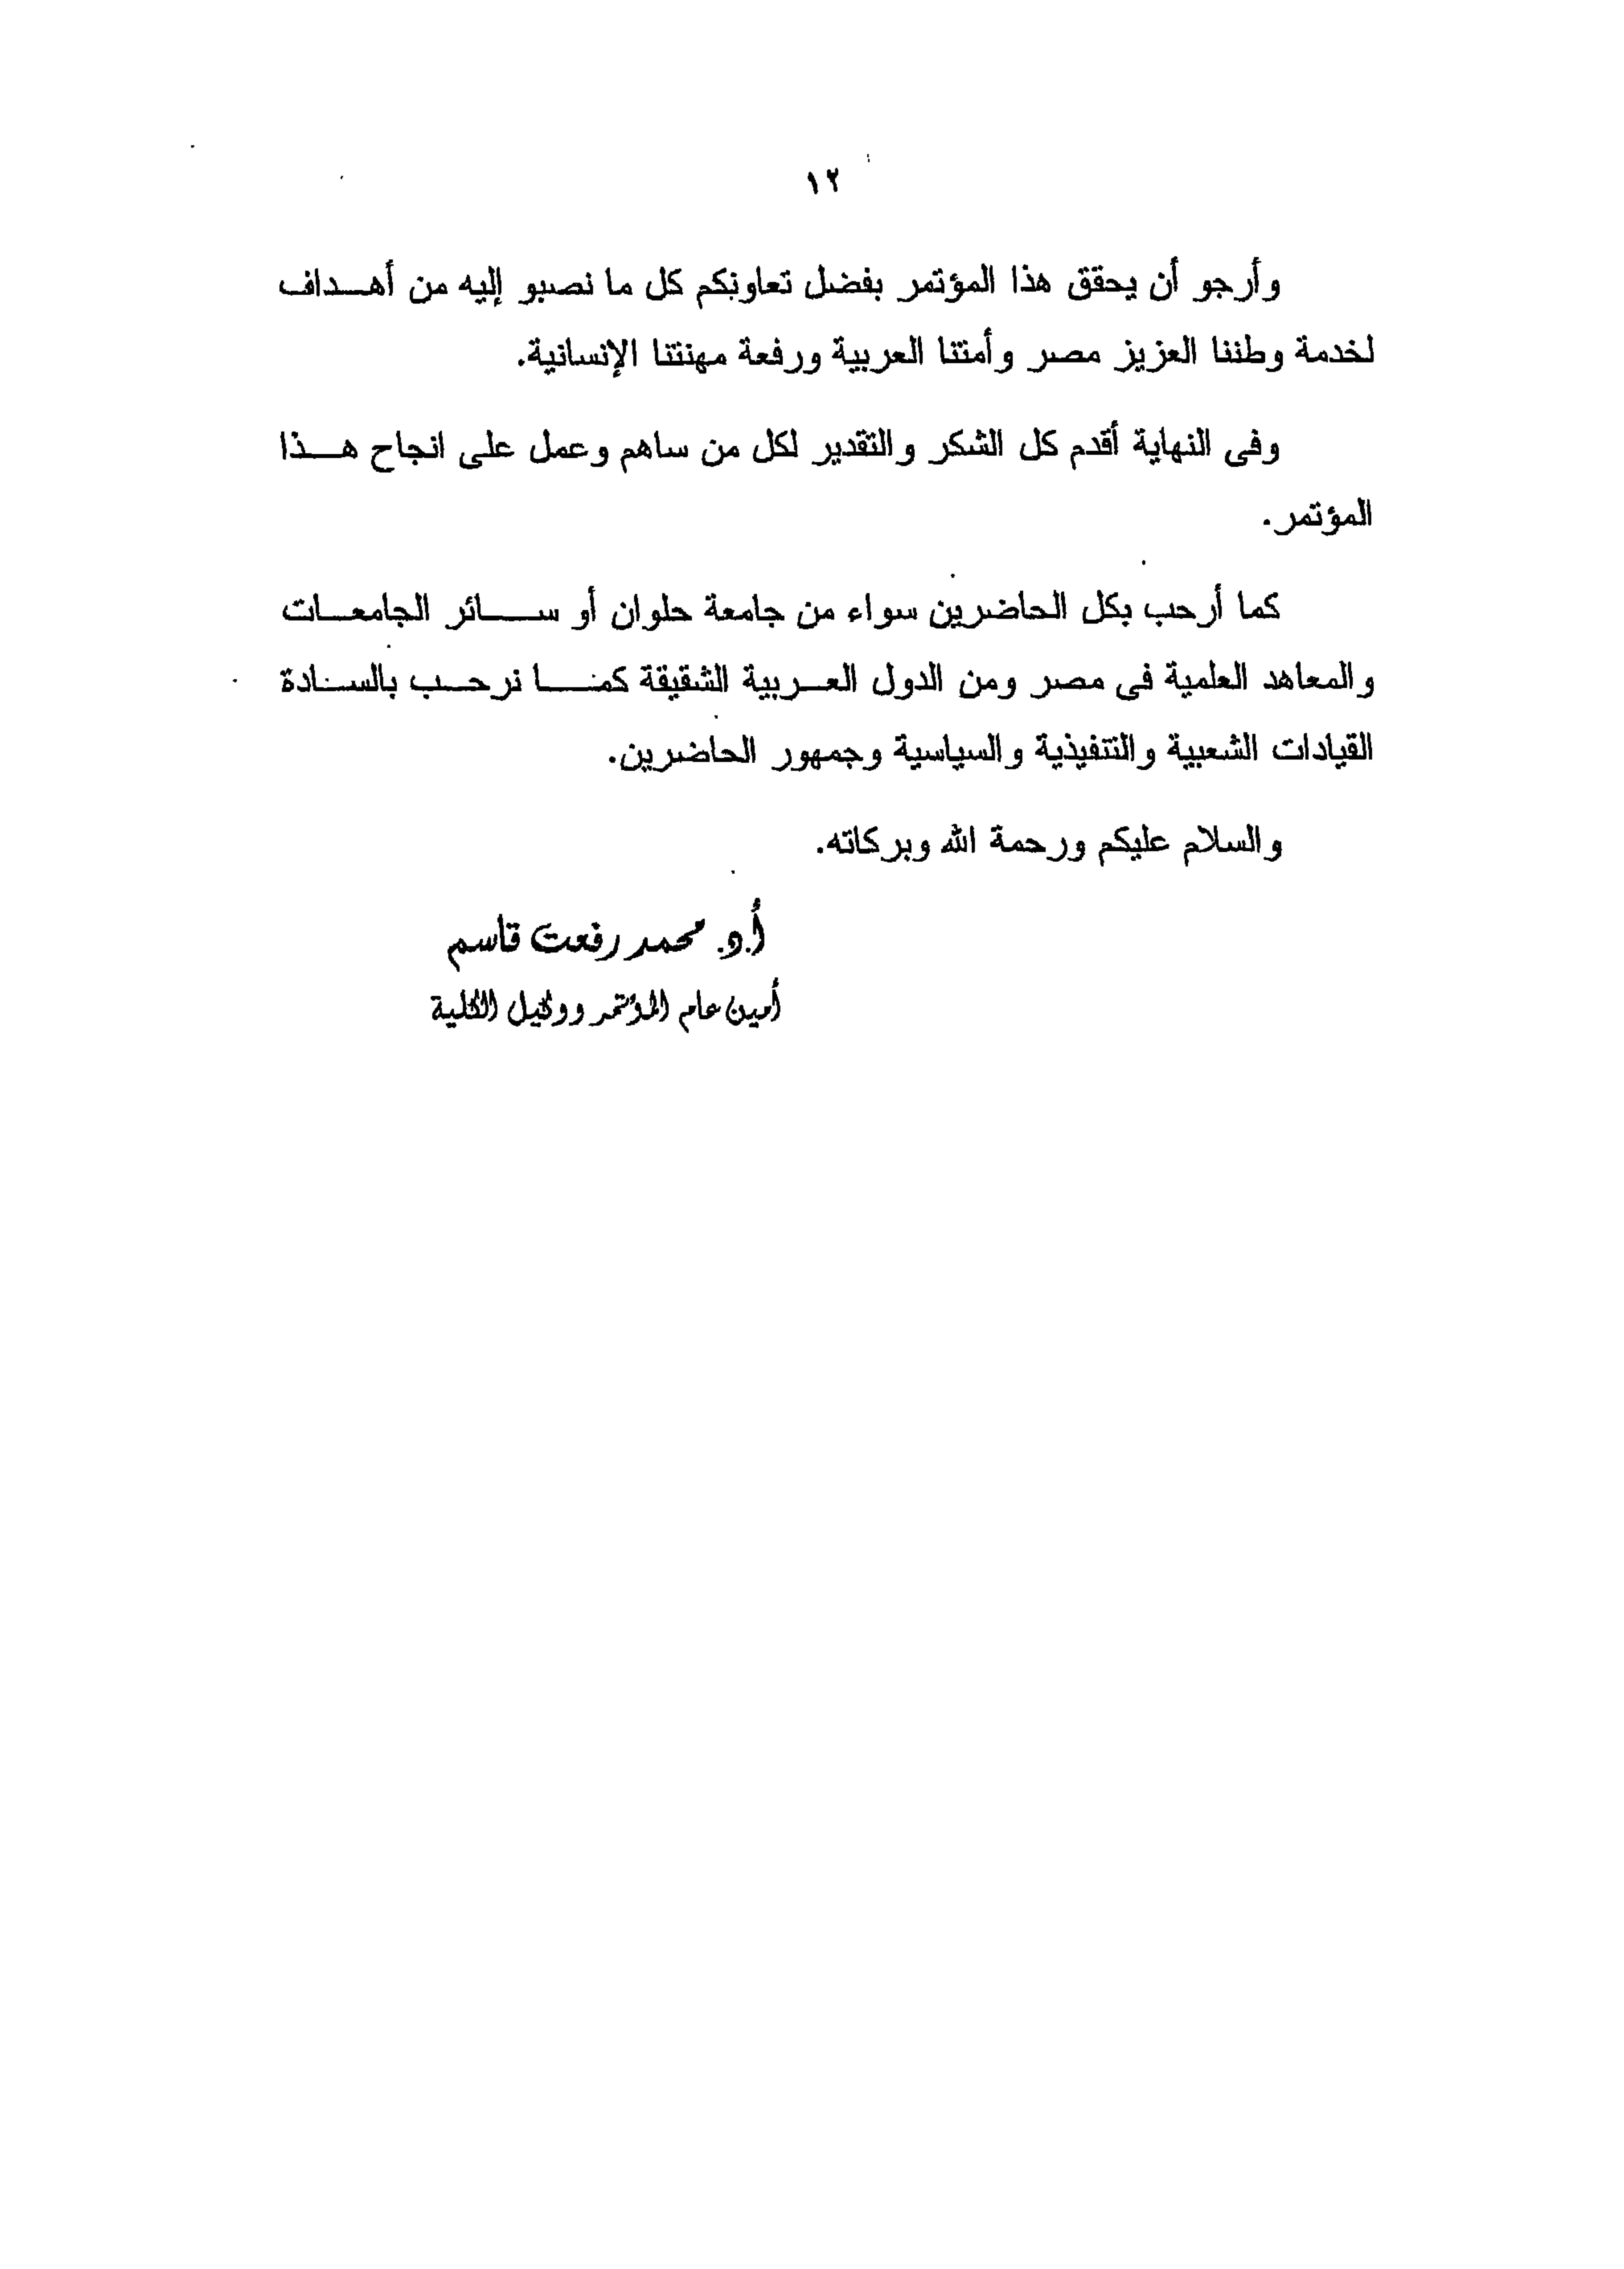 ١٢
وأرجو أن يحقق هذا المؤتمر بفضل تعاونكم كل ما نصبو إليه من أهـداف
لخدمة وطننا العزيز مصر وأمتنا العربية ورفعة مهنتنا الإنسانية.
وفى النهاية أقدم كل الشكر والتقدير لكل من ساهم وعمل على انجاح هـذا
المؤتمر.
كما أرحب بكل الحاضرين سواء من جامعة حلوان أو سـائر الجامعـات
والمعاهد العلمية فى مصر ومن الدول العـربية الشقيقة كمـا نرحـب بالسـادة
القيادات الشعبية والتنفيذية والسياسية وجمهور الحاضرين.
والسلام عليكم ورحمة الله وبركاته.
أ.د. محمد رفعت قاسم
أمين عام المؤتمر ووكيل الكلية